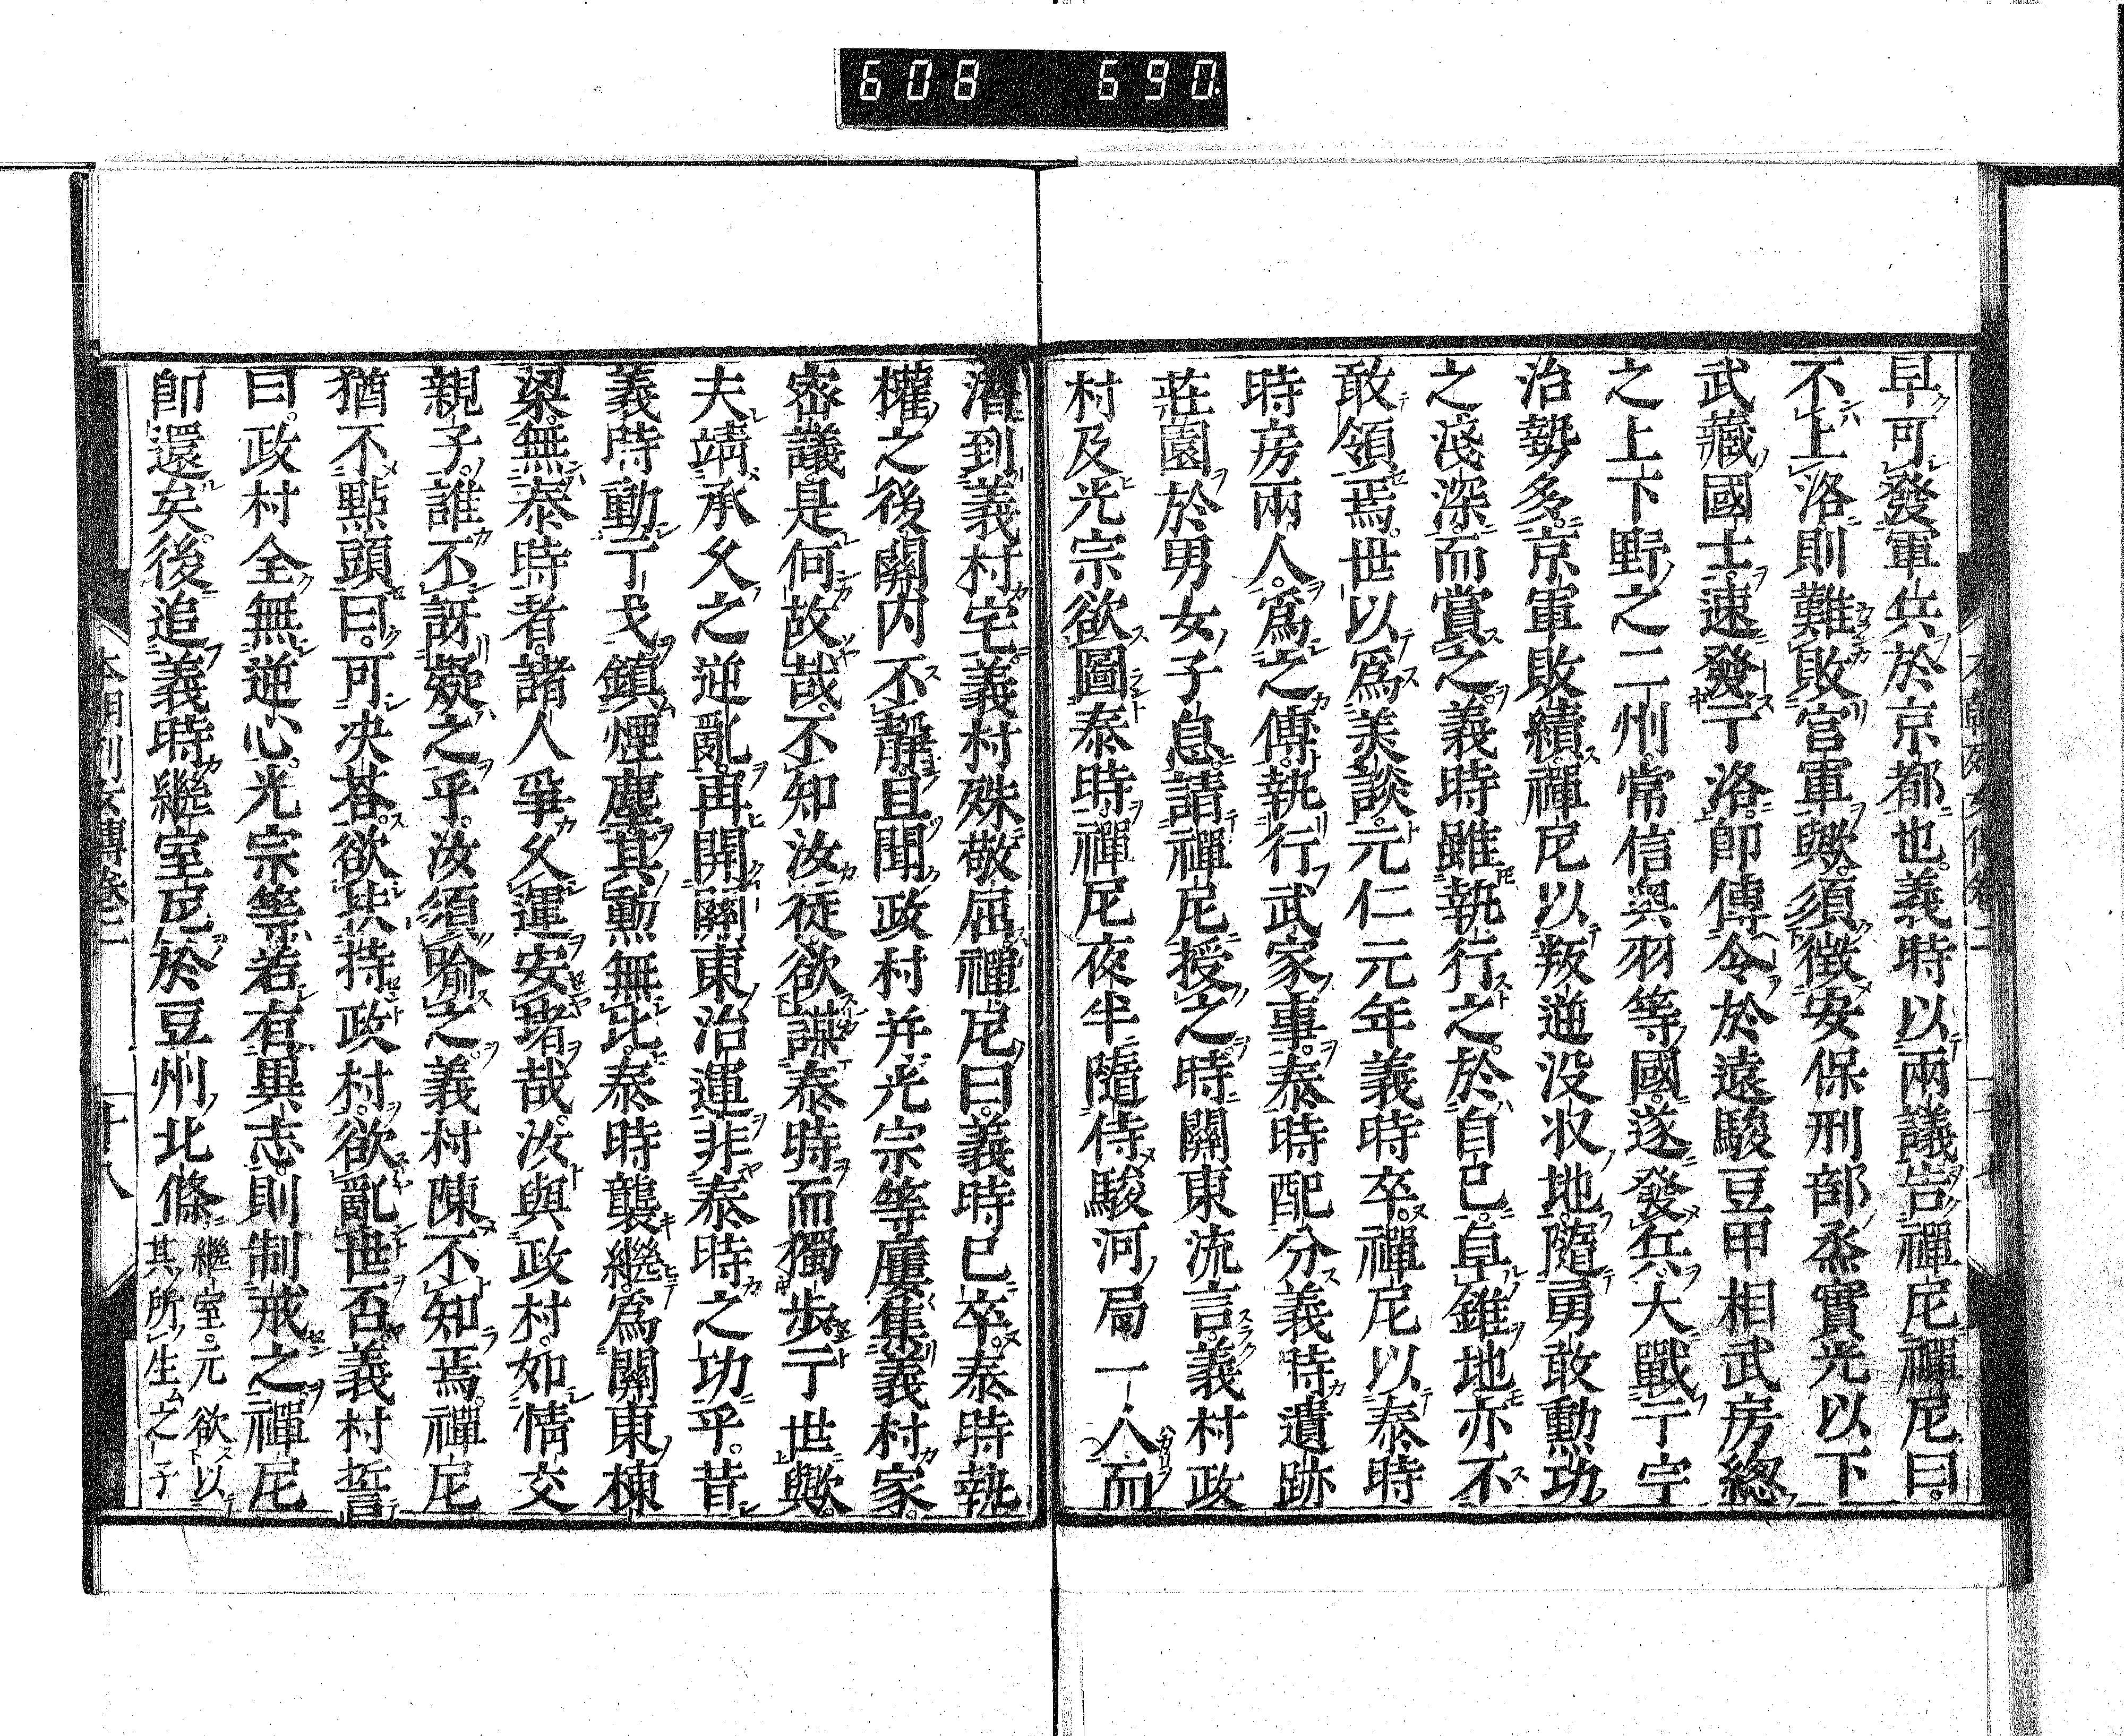 608 690.
早可發軍兵於京都也。義時以兩議告禪尼禪尼曰。
不上洛則難敗官軍歟。須徴安保刑部烝實光以下
武藏國士。速發于洛。即傳令於遠駿豆甲相武房總
之上下野之二州。常信奥羽等國。遂發兵大戰于宇
治勢多。京軍敗績。禪尼以叛逆没収地。隨勇敢勳功
之淺深。而賞之。義時雖執行之。於自己。卓錐地亦不
敢領焉。世以爲美談。元仁元年義時卒。禪尼以泰時
時房兩人。爲之傳。執行武家事。泰時配分義時遺跡
莊園於男女子息。請禪尼授之。時關東流言。義村政
村及光宗欲圖泰時。禪尼夜半隨侍駿河局一人而
潛到義村宅。義村殊敬屈。禪尼曰。義時已卒。泰時執
權之後。關内不靜。且聞政村并光宗等屢集義村家。
密議。是何故哉。不知汝徒欲謀泰時而獨歩于世歟。
夫靖承久之逆亂。再開關東治運。非泰時之功乎。昔
義時動丁戈鎮煙塵。其勳無比。泰時襲繼爲關東棟
梁。無泰時者。諸人爭久運安堵哉。汝與政村。如情交
親子。誰不訝疑之乎。汝須喩之。義村陳不知焉。禪尼
猶不點頭曰。可决荅。欲扶持政村。欲亂世否。義村誓
曰。政村全無逆心。光宗等若有異志。則制戒之。禪尼
即還矣。後追義時繼室尼於豆州北條繼室。元欲以
其所生之子
本朝列女傳卷二 十八